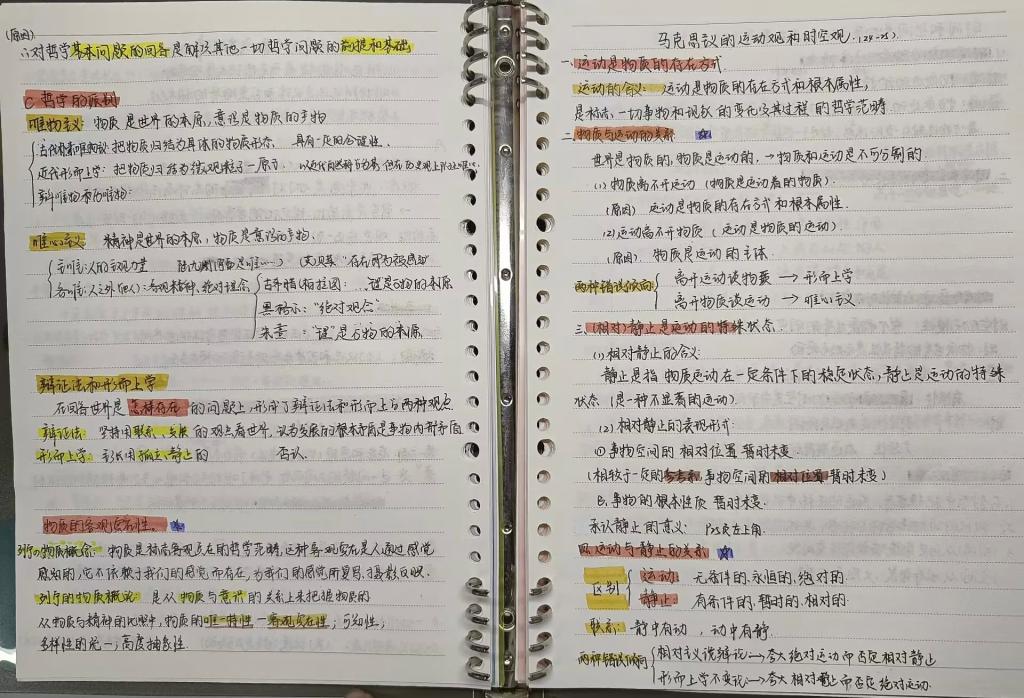 (原因)
∴对哲学基本问题的回答是解决其他一切哲学问题的前提和基础
C 哲学的派别
唯物主义: 物质是世界的本原,意识是物质的产物
古代朴素唯物主义:把物质归结为具体的物质形态、具有一定的合理性.
近代形而上学: 把物质归结为微观粒子—原子.
辩证唯物和历史唯物:
唯心主义: 精神是世界的本原,物质是意识的产物.
主唯:人的主观力量 "存在即为被感知"
客唯:人之外(他人):客观精神、绝对理念
古希腊(柏拉图): 是万物的本原
黑格尔: "绝对观念"
朱熹: "理"是万物的本原
辩证法和形而上学
在回答世界是怎样存在的问题上,形成了辩证法和形而上学两种观点
辩证法: 坚持用联系、发展的观点看世界,认为发展的根本原因是事物内部矛盾
形而上学: 主张用孤立、静止的 否认.
物质的客观实在性. ☆
列宁的物质概念: 物质是标志客观实在的哲学范畴,这种客观实在是人通过感觉
感知的,它不依赖于我们的感觉而存在,为我们的感觉所复写、摄影、反映.
列宁的物质概念: 是从物质与意识的关系上来把握物质的
从物质与精神的比照中,物质的唯一特性—客观实在性; 可知性;
多样性的统一; 高度抽象性.
马克思主义的运动观和时空观. (24-25)
一. 运动是物质的存在方式
运动的含义: 运动是物质的存在方式和根本属性,
是标志一切事物和现象的变化及其过程的哲学范畴
二. 物质与运动的关系 ☆
世界是物质的,物质是运动的, → 物质和运动是不可分割的
(1) 物质离不开运动 (物质是运动着的物质).
(原因) 运动是物质的存在方式和根本属性.
(2) 运动离不开物质 (运动是物质的运动)
(原因). 物质是运动的主体.
两种错误倾向
离开运动谈物质 → 形而上学
离开物质谈运动 → 唯心主义
三. (相对)静止是运动的特殊状态.
(1) 相对静止的含义:
静止是指物质运动在一定条件下的稳定状态,静止是运动的特殊
状态 (是一种不显著的运动).
(2) 相对静止的表现形式:
① 事物空间的相对位置暂时未变
(相较于一定的参考系,事物空间的相对位置暂时未变)
②. 事物的根本性质 暂时未变.
承认静止的意义: P25页左上角.
四. 运动与静止的关系 ☆
区别
运动: 无条件的、永恒的、绝对的.
静止: 有条件的、暂时的、相对的.
联系: 静中有动, 动中有静.
两种错误倾向
相对主义诡辩论 → 夸大绝对运动而否定相对静止
形而上学不变论 → 夸大相对静止而否定绝对运动.